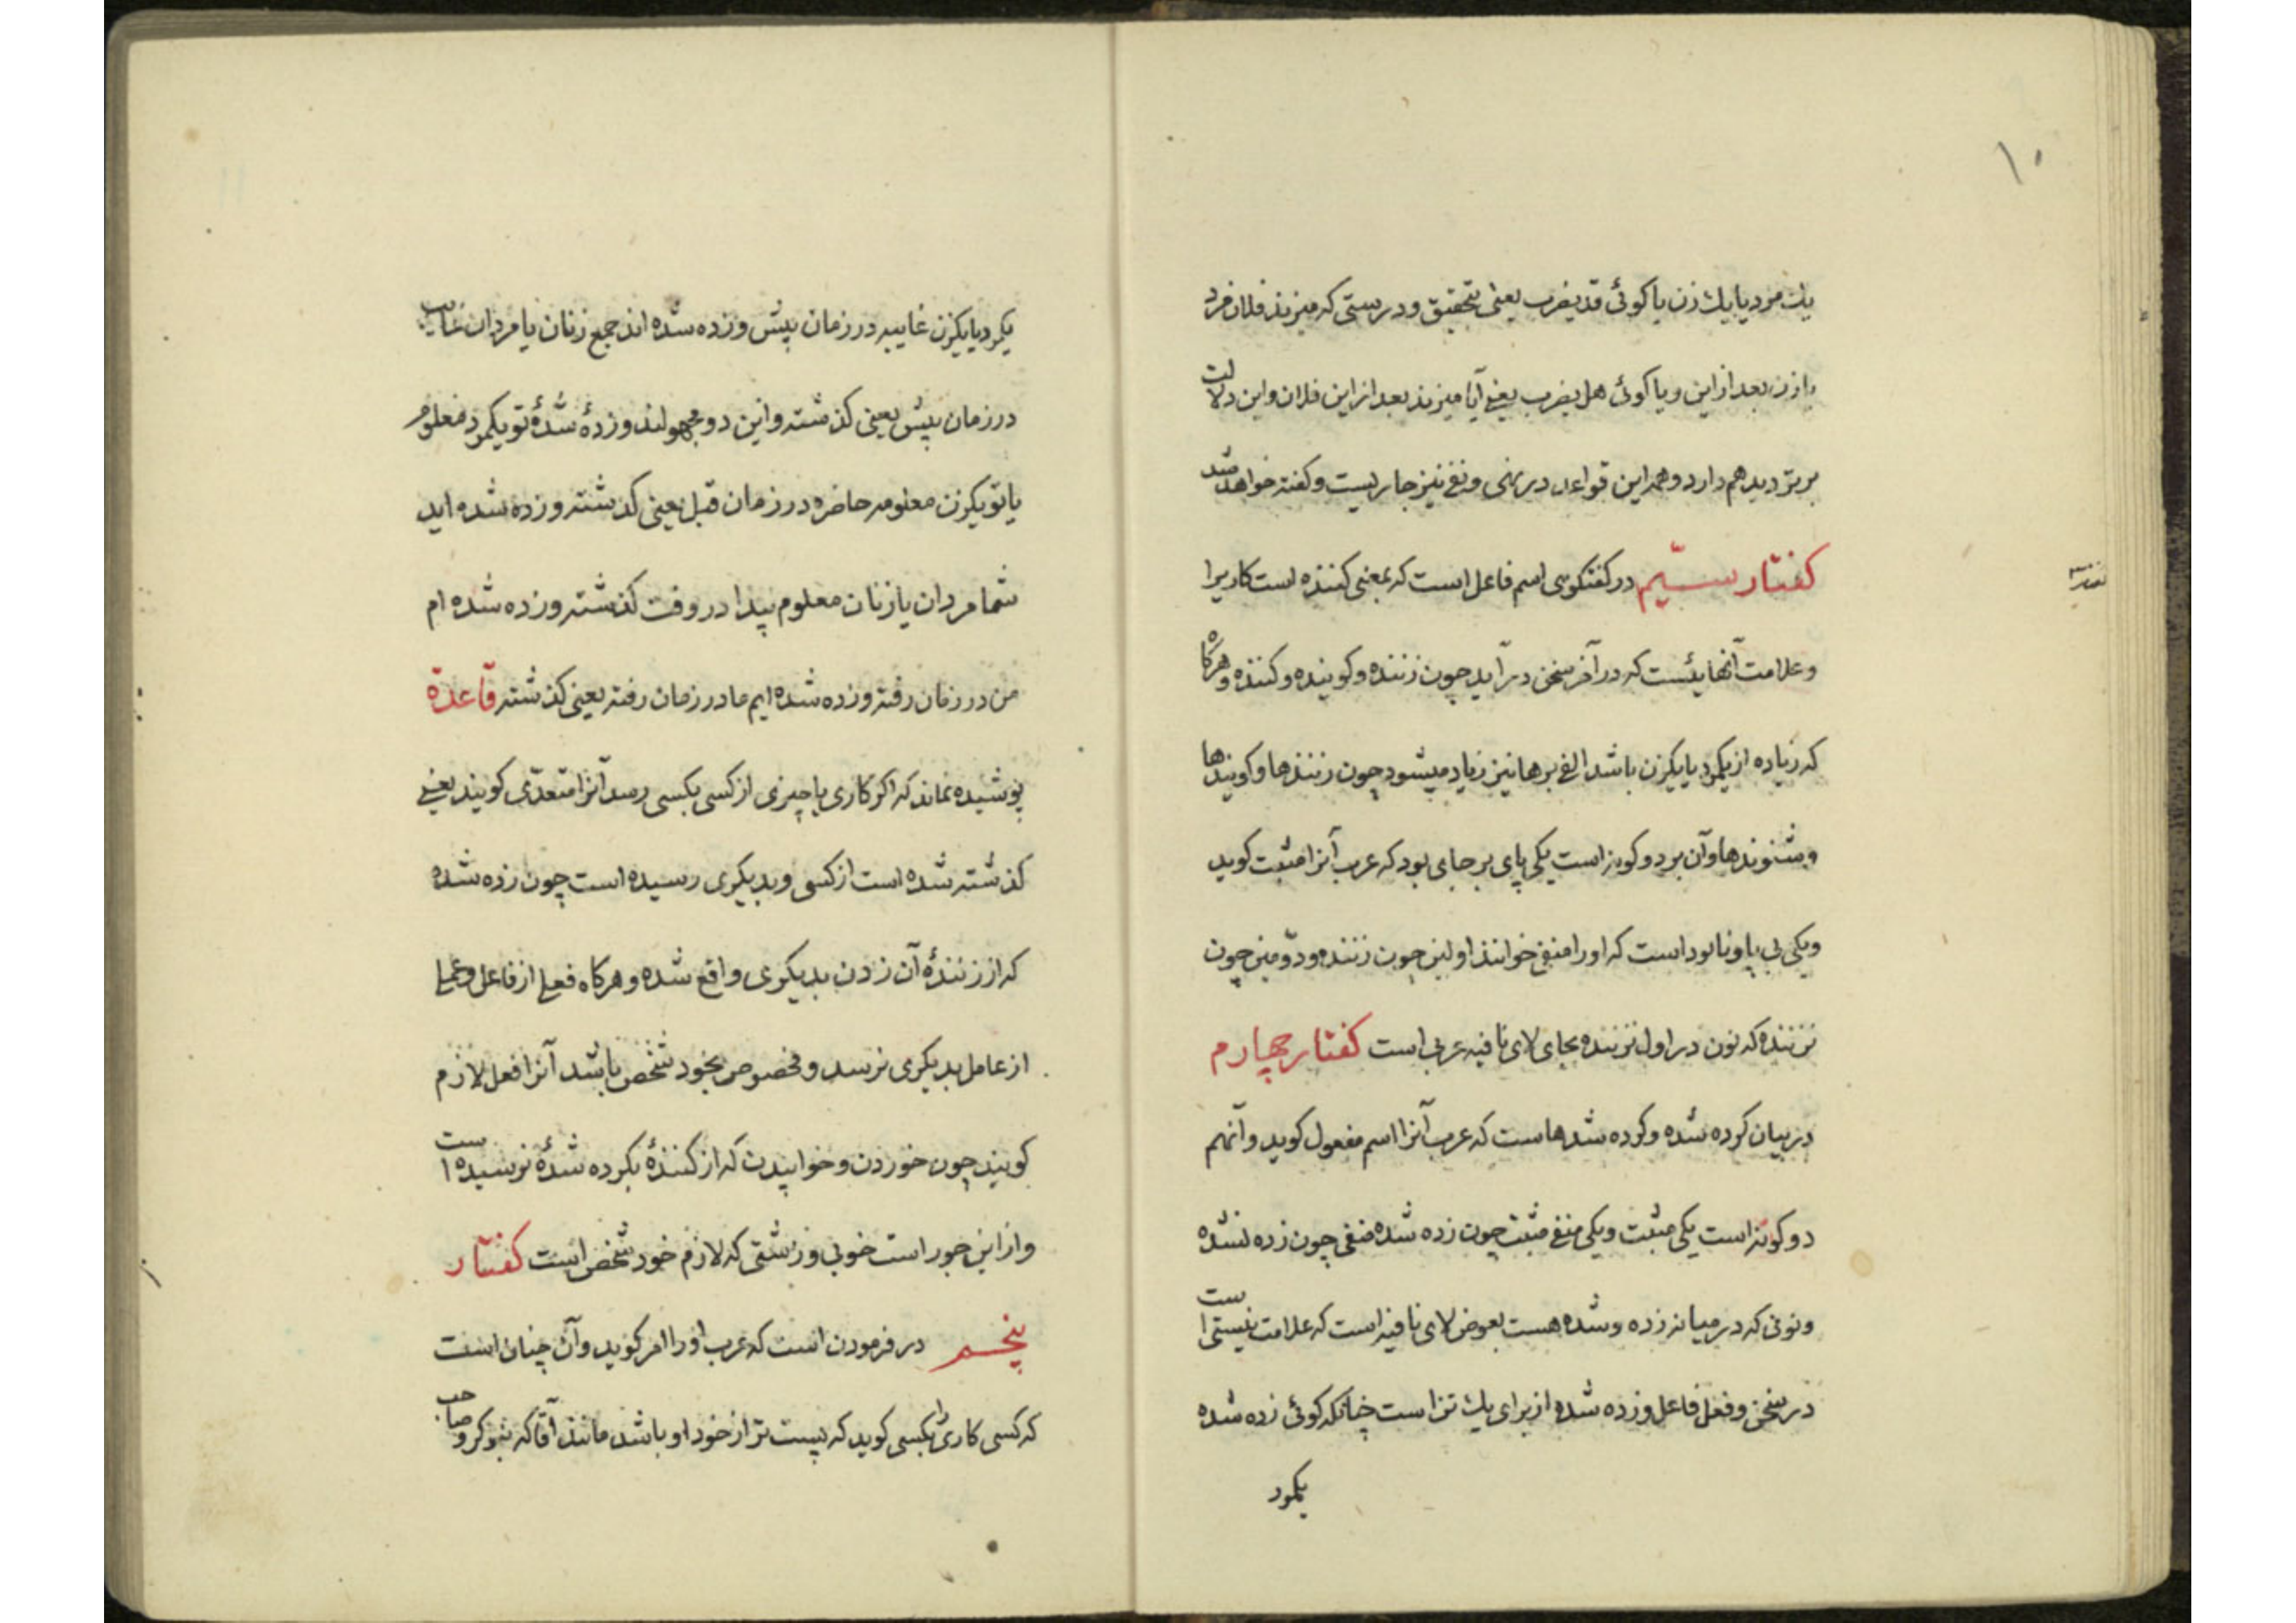 ١٠
يك مرد يا يك زن يا كوئى قد يضرب يعنى بتحقيق و درستى كه ميزند فلان مرد
يا زن بعد از اين و يا كوئى هل يضرب يعنى آيا ميزند بعد از اين فلان و اين دلالت
بر ترديد هم دارد و همه اين قواعد در نهى و نفى نيز جاريست و كفته خواهد شد
كفتار سيّم در كفتكوى اسم فاعل است كه بمعنى كننده است كاريرا
و علامت آنهائيست كه در آخر سخن در آيد چون زننده و كوينده و كننده و هركاه
كه زياده از يكمرد يا يكزن باشد الف بر ها نيز زياد ميشود چون زنندها و كويندها
و شنوندها و آن بر دو كونه است يكى پاى بر جاى بود كه عرب آنرا مثبت كويد
و يكى بى پا و نابود است كه او را منفى خوانند اولين چون زننده و دوّمين چون
نزننده كه نون در اول نزننده بجاى لاى نافيه عربى است كفتار چهارم
در بيان كرده شده و كرده شدهاست كه عرب آنرا اسم مفعول كويد و آنهم
دو كونه است يكى مثبت و يكى منفى مثبت چون زده شده منفى چون زده نشده
و نونى كه در ميانه زده و شده هست بعوض لاى نافيه است كه علامت نيستى است
در سخن و فعل فاعل و زده شده از براى يك تن است چنانكه كوئى زده شده
يكمرد
يكمرد يا يكزن غايبه در زمان پيش و زده شده اند جمع زنان يا مردان غايب
در زمان پيش يعنى كذشته و اين دو مجهولند و زدۀ شدۀ تو يكمرد معلوم
يا تو يكزن معلومه حاضره در زمان قبل يعنى كذشته و زده شده ايد
شما مردان يا زنان معلوم پيدا در وقت كذشته و زده شده ام
من در زمان رفته و زده شده ايم ما در زمان رفته يعنى كذشته قاعدة
پوشيده نماند كه اكر كارى يا چيزى از كسى بكسى رسد آنرا متعدّى كويند يعنى
كذشته شده است از كسى و بديكرى رسيده است چون زده شده
كه از زنندۀ آن زدن بديكرى واقع شده و هركاه فعلى از فاعل و عملى
از عامل بديكرى نرسد و مخصوص بخود شخص باشد آنرا فعل لازم
كويند چون خوردن و خوابيدن كه از كنندۀ بكرده شدۀ نرسيده است
و از اين جور است خوبى و زشتى كه لازم خود شخص است كفتار
پنجم در فرمودن است كه عرب او را امر كويد و آن چنان است
كه كسى كارى را بكسى كويد كه پست تر از خود او باشد مانند آقا كه بنوكر و صاحب